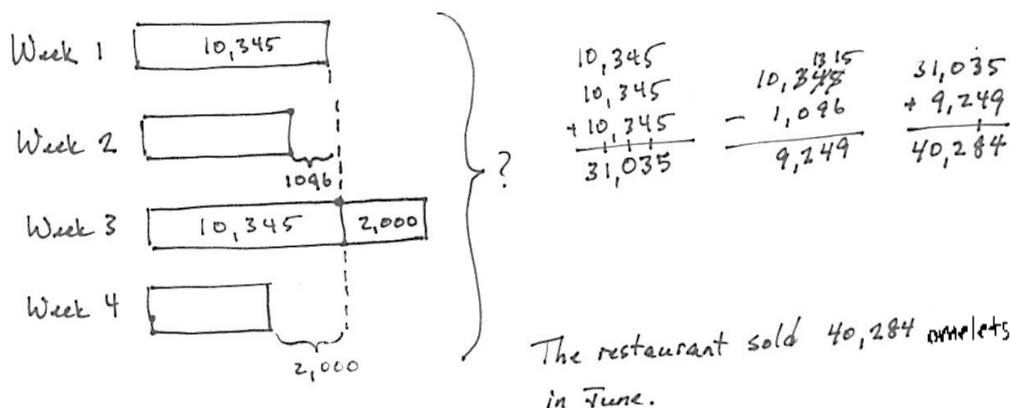 Week 1 10,345
Week 2
1096
Week 3 10,345 2,000
Week 4
2,000
?
10,345
10,345
+ 10,345
31,035
13 15
10,345
- 1,096
9,249
31,035
+ 9,249
40,284
The restaurant sold 40,284 omelets
in June.